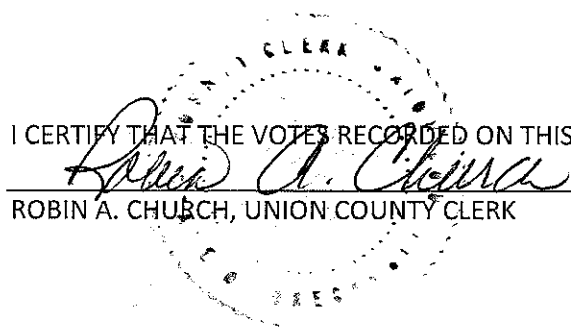 CLERK
I CERTIFY THAT THE VOTES RECORDED ON THIS
Robin A. Church
ROBIN A. CHURCH, UNION COUNTY CLERK